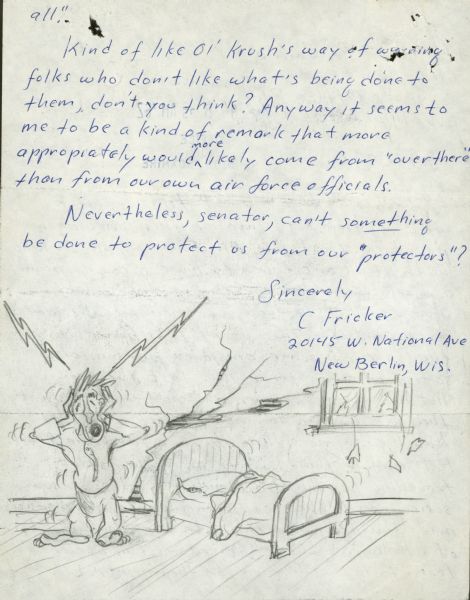 all."
Kind of like Ol' Krush's way of warning
folks who don't like what's being done to
them, don't you think? Anyway it seems to
me to be a kind of remark that more
appropiately would more likely come from "over there"
than from our own air force officials.
Nevertheless, senator, can't something
be done to protect us from our "protectors"?
Sincerely
C Fricker
20145 W. National Ave
New Berlin, Wis.